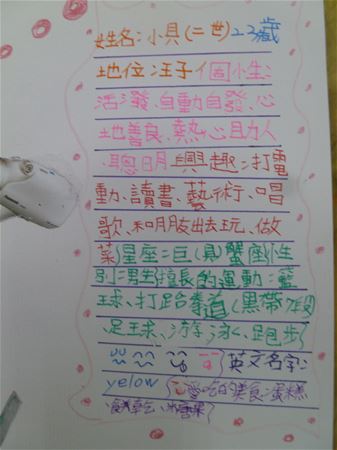 姓名：小貝(二世)23歲
地位：王子個小生：
活潑、自動自發、心
地善良、熱心助人
、聰明興趣：打電
動、讀書、藝術、唱
歌、和朋友出去玩、做
菜星座：巨(具)蟹座性
別：男生擅長的運動：籃
球、打跆拳道(黑帶7段)
足球、游泳、跑步
英文名字：
yelow 愛吃的美食：蛋糕
餅乾、糖果